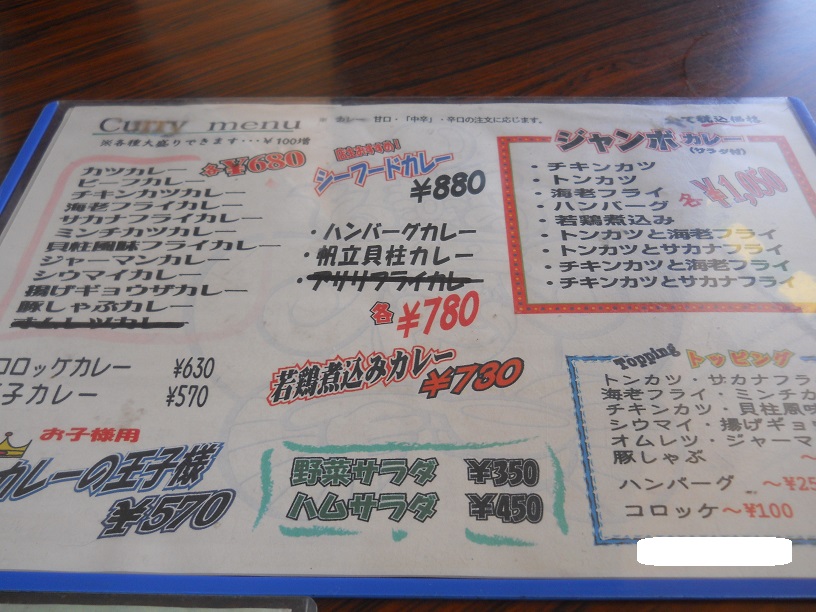 Curry menu
※ カレー 甘口・「中辛」・辛口の注文に応じます。
全て税込価格
※各種大盛りできます・・・￥100増
各￥680
カツカレー
ビーフカレー
チキンカツカレー
海老フライカレー
サカナフライカレー
ミンチカツカレー
貝柱風味フライカレー
ジャーマンカレー
シウマイカレー
揚げギョウザカレー
豚しゃぶカレー
オムレツカレー
コロッケカレー ¥630
子カレー ¥570
お子様用
カレーの王子様
￥570
シーフードカレー
￥880
・ハンバーグカレー
・帆立貝柱カレー
・アサリフライカレー
各￥780
若鶏煮込みカレー ￥730
野菜サラダ ￥350
ハムサラダ ￥450
ジャンボカレー
(サラダ付)
各￥1,050
・チキンカツ
・トンカツ
・海老フライ
・ハンバーグ
・若鶏煮込み
・トンカツと海老フライ
・トンカツとサカナフライ
・チキンカツと海老フライ
・チキンカツとサカナフライ
Topping トッピング
トンカツ・サカナフラ
海老フライ・ミンチカ
チキンカツ・貝柱風味
シウマイ・揚げギョ
オムレツ・ジャーマ
豚しゃぶ ～
ハンバーグ ～¥25
コロッケ～¥100